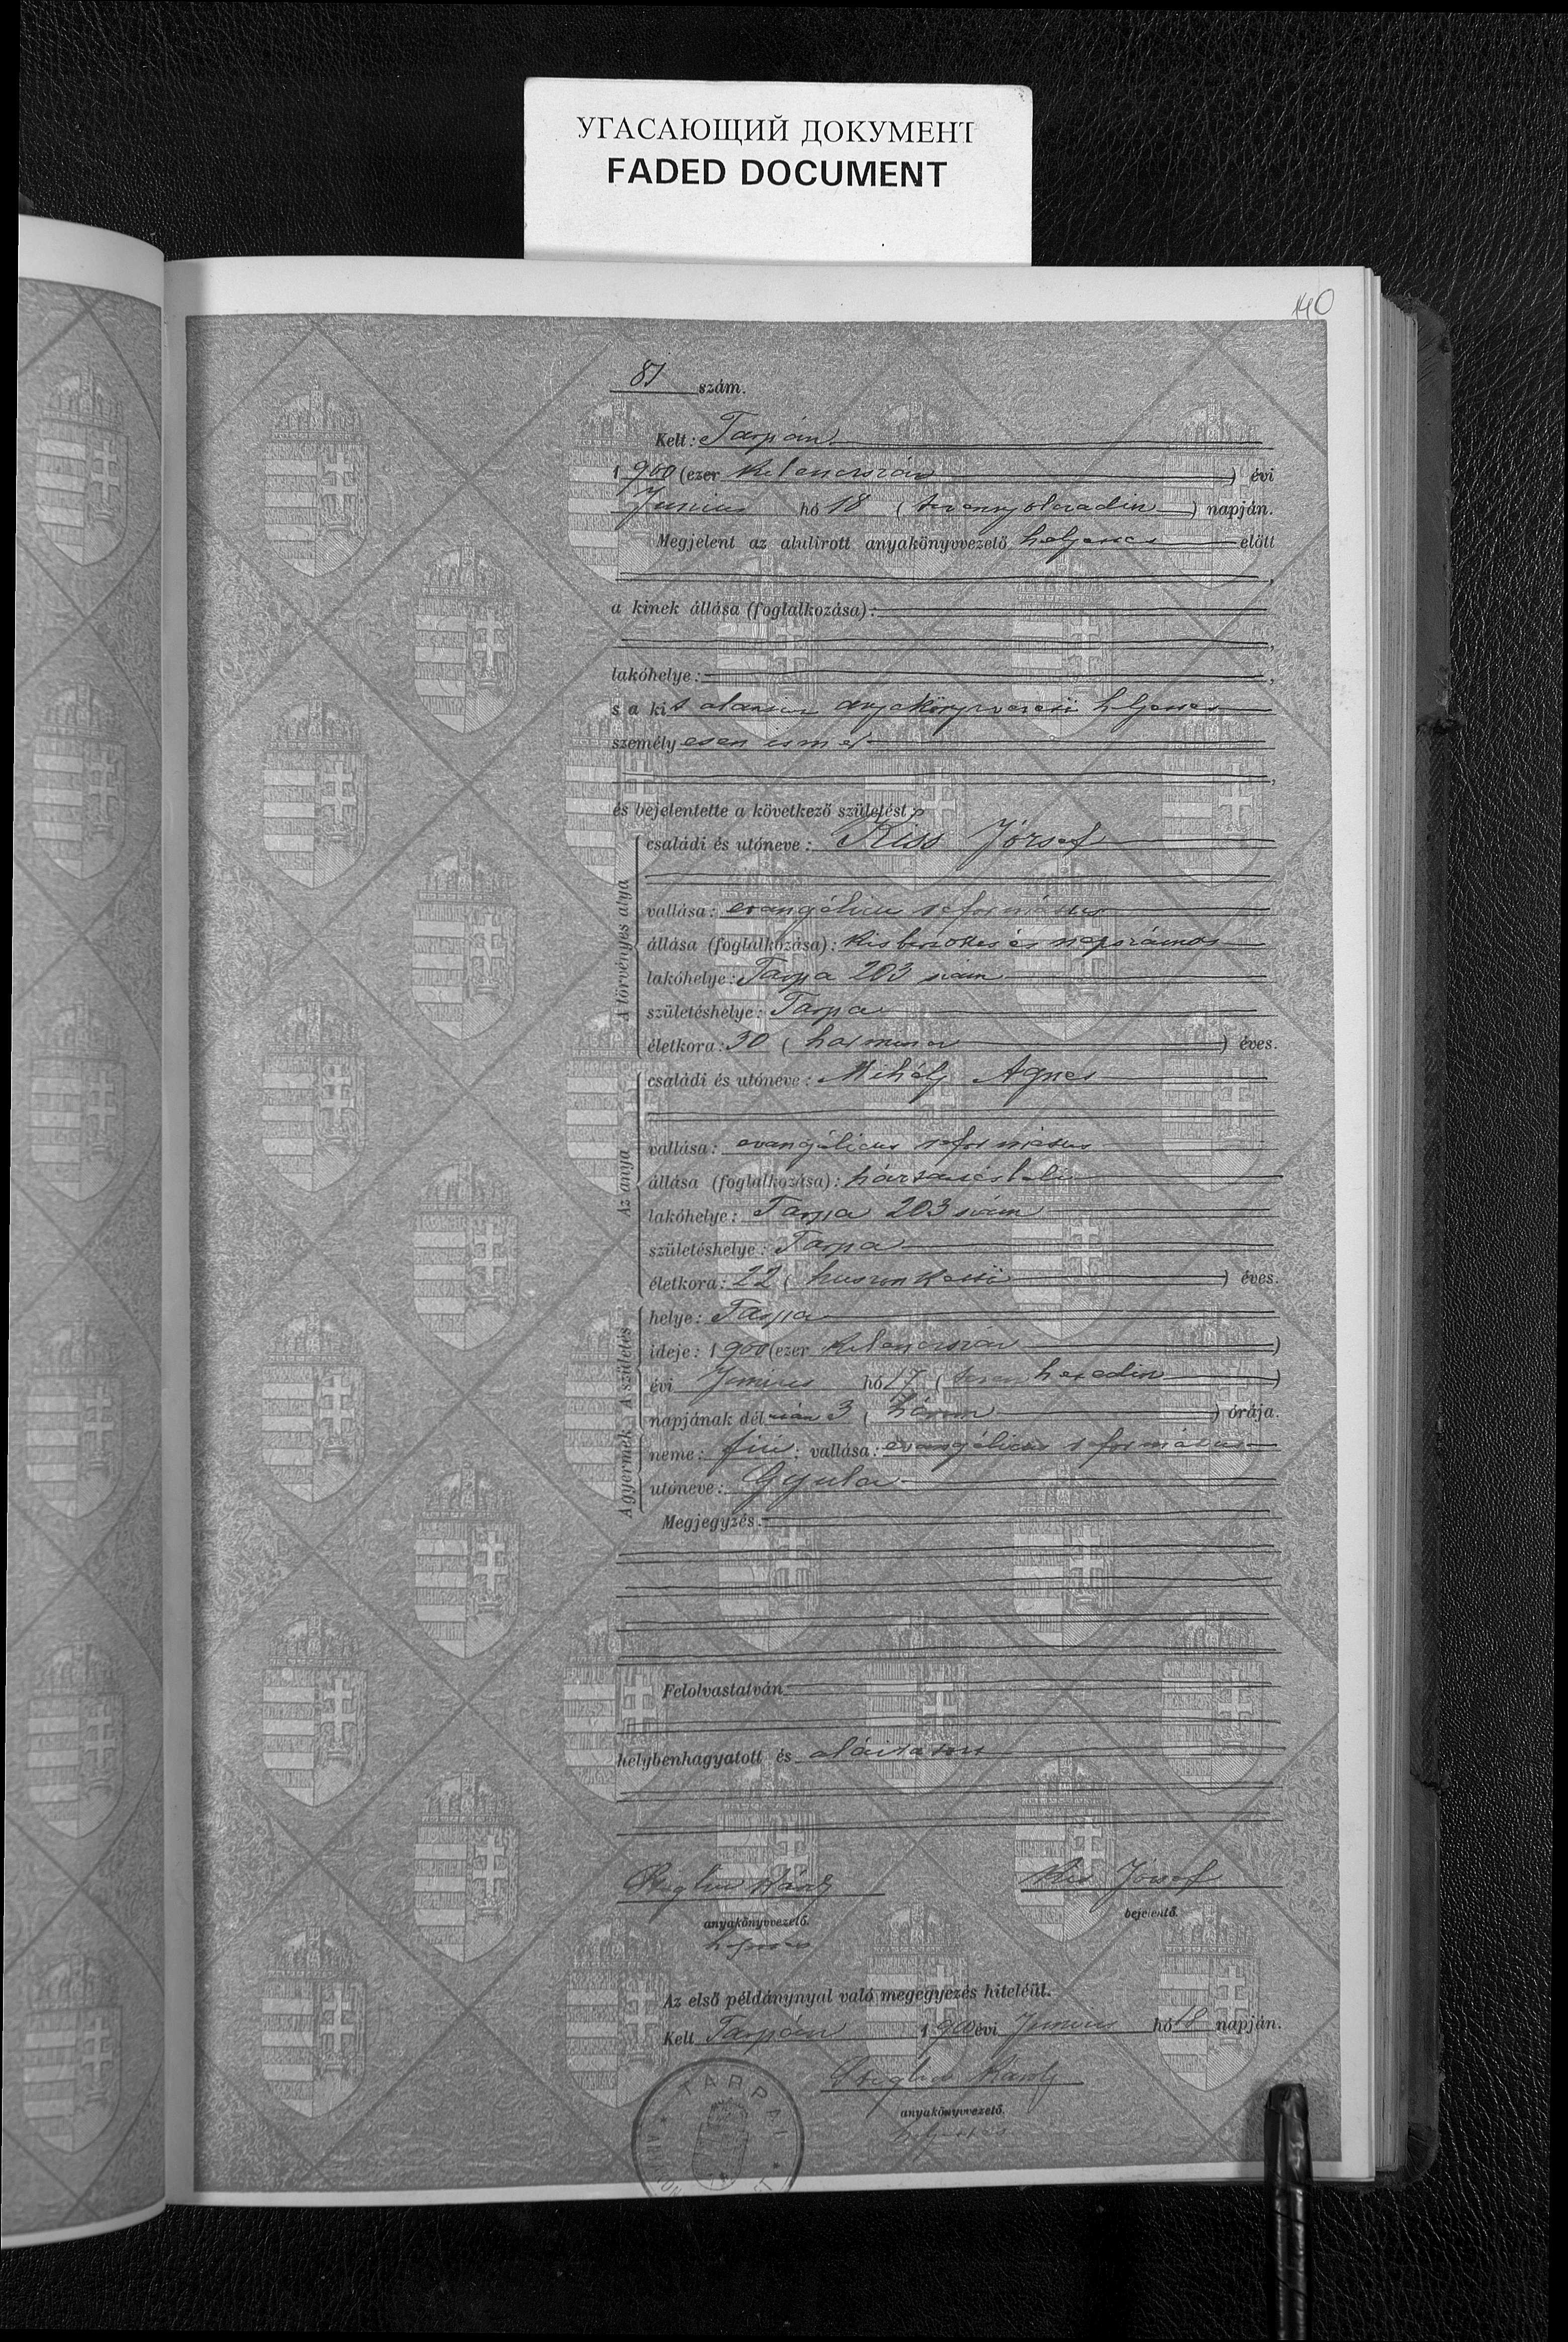 УГАСАЮЩИЙ ДОКУМЕНТ
FADED DOCUMENT
140
81 szám.
Kelt: Tarpán
1900 (ezer kilenczszáz) évi
Junius hó 18 (tizennyolczadik) napján.
Megjelent az alulirott anyakönyvvezető helyettes előtt
a kinek állása (foglalkozása):
lakóhelye:
s a kit alanti anyakönyvvezető helyettes
személyesen ismer
és bejelentette a következő születést:
A törvényes atya
családi és utóneve: Kiss József
vallása: evangélicus református
állása (foglalkozása): kisbirtokos és napszámos
lakóhelye: Tarpa 203 szám
születéshelye: Tarpa
életkora: 30 (harmincz) éves.
Az anya
családi és utóneve: Mihály Ágnes
vallása: evangélicus református
állása (foglalkozása): háztartásbeli
lakóhelye: Tarpa 203 szám
születéshelye: Tarpa
életkora: 22 (huszonkettő) éves.
A születés
helye: Tarpa
ideje: 1900 (ezer kilenczszáz)
évi Junius hó 17 (tizenhetedik)
napjának délután 3 (három) órája.
A gyermek
neme: fiú; vallása: evangélicus református
utóneve: Gyula
Megjegyzés:
Felolvastatván,
helybenhagyatott és aláiratott
Károly Kiss József
anyakönyvvezető. bejelentő.
helyettes
Az első példánynyal való megegyezés hiteléül.
Kelt Tarpán 1900 évi Junius hó 18 napján.
Károly
anyakönyvvezető.
helyettes
TARPAI